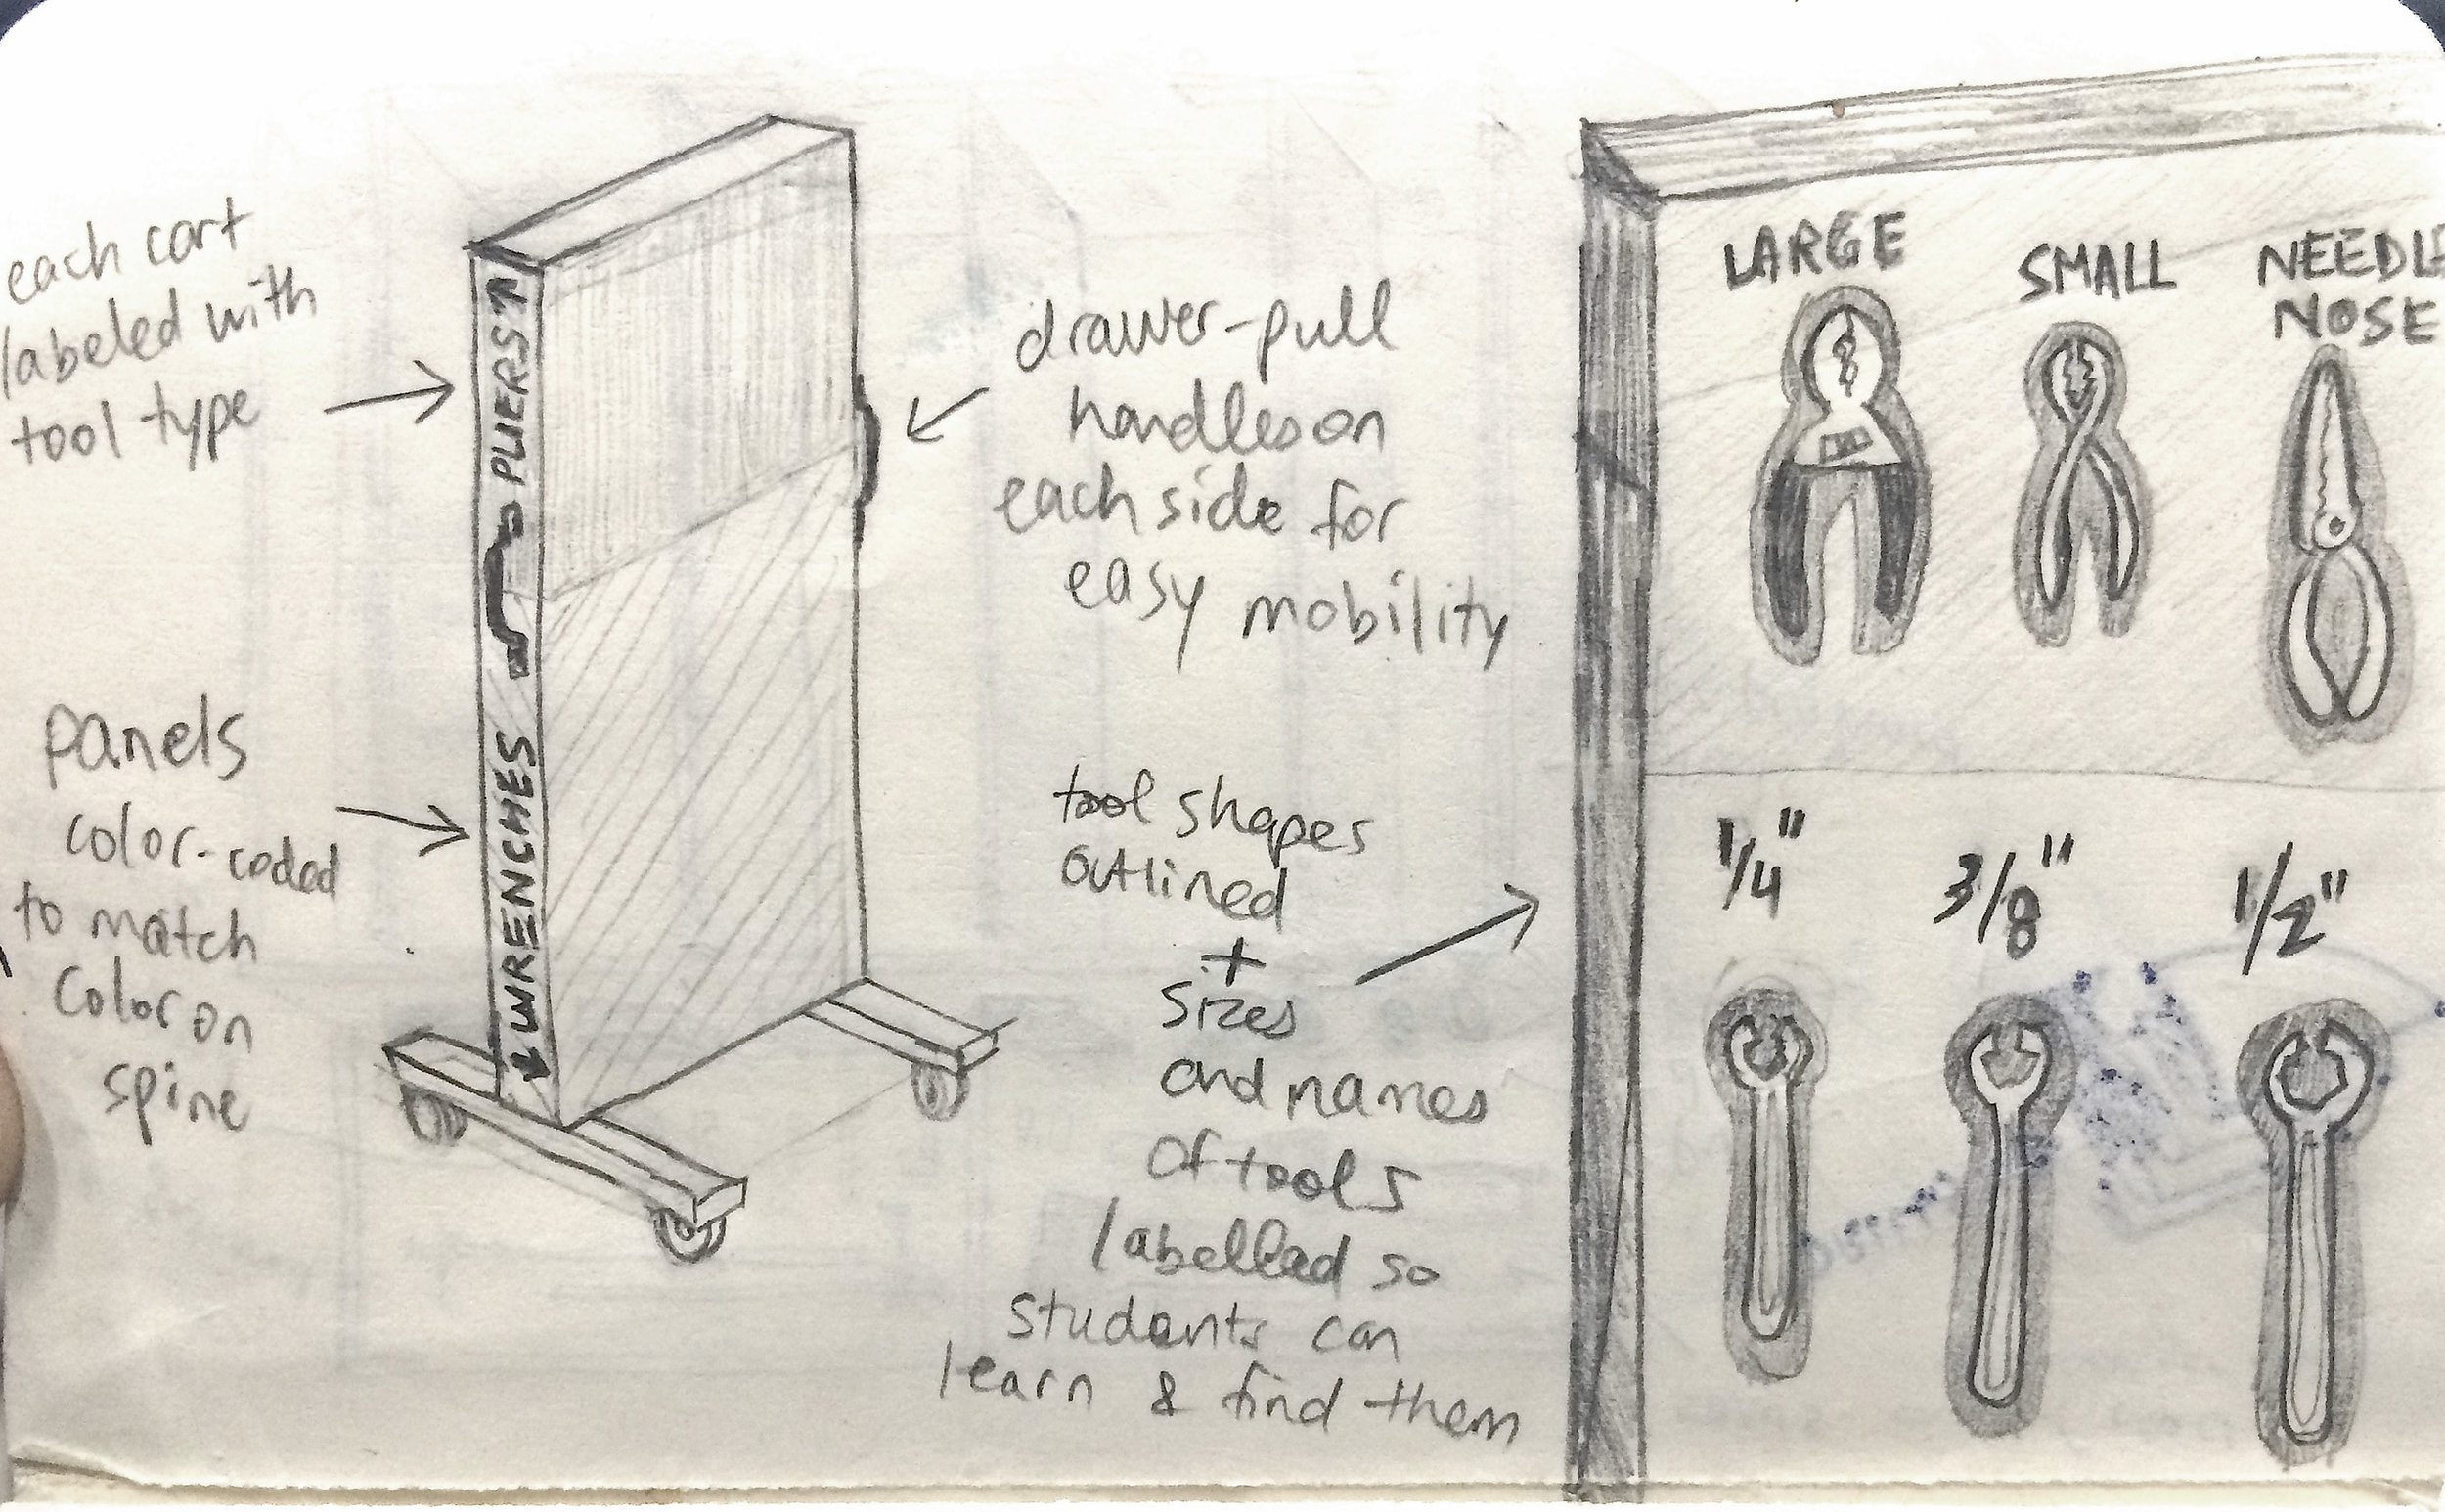 each cart
labeled with
tool type
panels
color-coded
to match
color on
spine
PLIERS
WRENCHES
drawer-pull
handles on
each side for
easy mobility
tool shapes
outlined
+
sizes
and names
of tools
labelled so
students can
learn & find them
LARGE
SMALL
NEEDLE
NOSE
1/4"
3/8"
1/2"